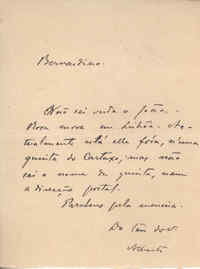 Bernardino.
Não sei onde o João.
Mora em Lisboa. Ac-
tualmente está elle fóra, n'uma
quinta do Cartaxo; mas não
sei o nome da quinta, nem
a direcção postal.
Parabens pela menina.
Do